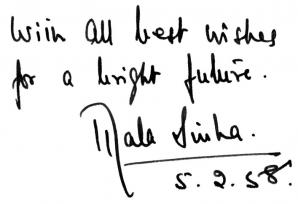 With all best wishes
for a bright future.
Mala Sinha.
5.2.58.